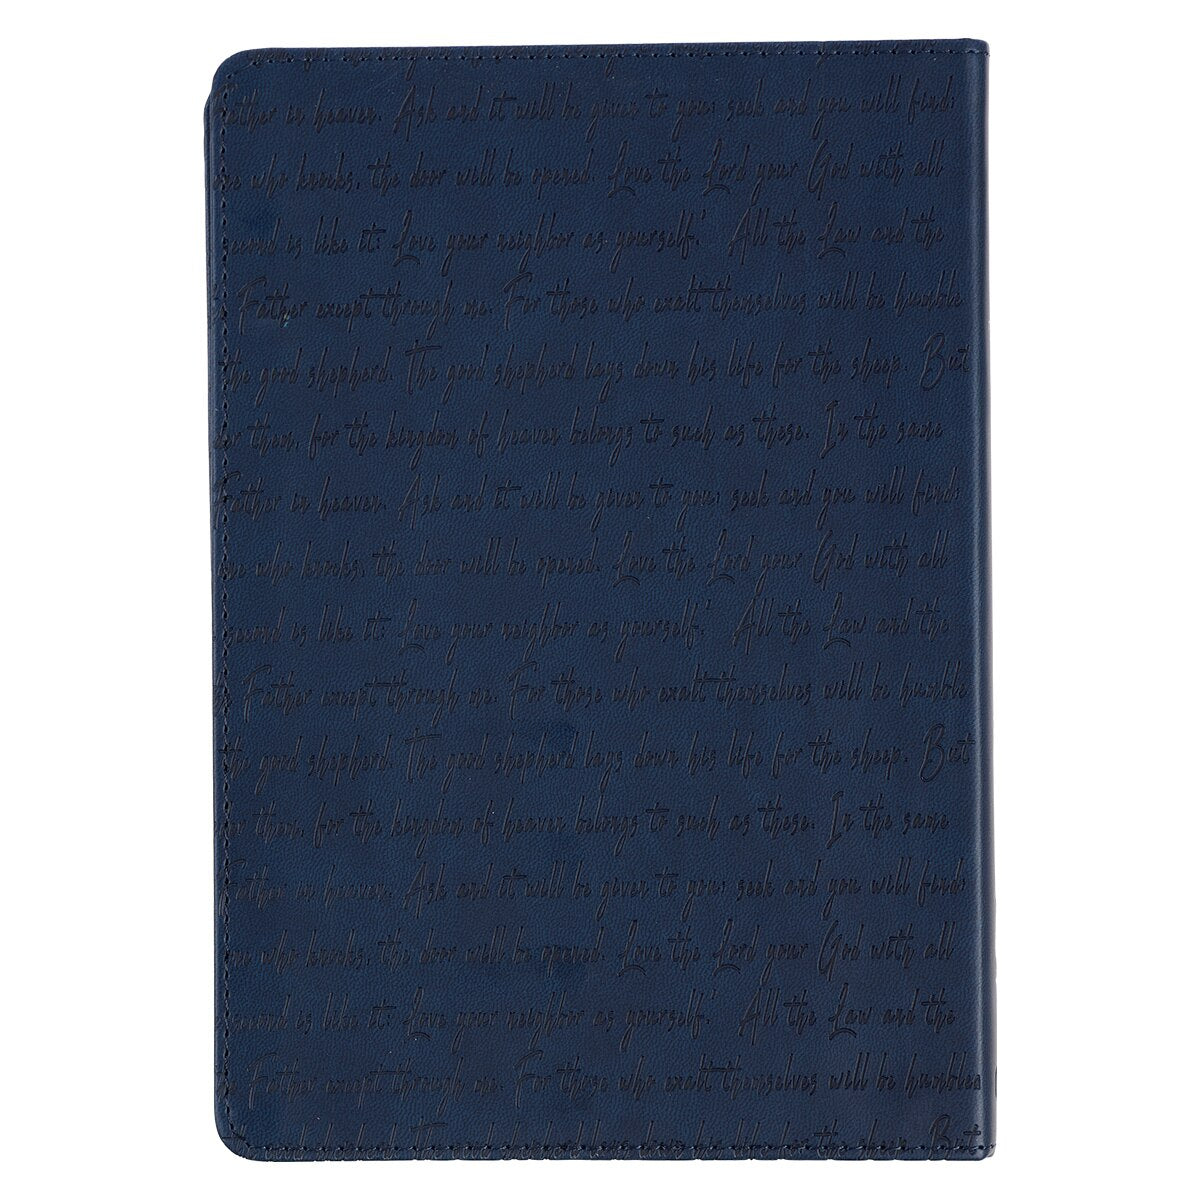 Father in heaven. Ask and it will be given to you; seek and you will find;
one who knocks, the door will be opened. Love the Lord your God with all
second is like it: Love your neighbor as yourself.' All the Law and the
Father except through me. For those who exalt themselves will be humble
the good shepherd. The good shepherd lays down his life for the sheep. But
der them, for the kingdom of heaven belongs to such as these. In the same
Father in heaven. Ask and it will be given to you; seek and you will find;
one who knocks, the door will be opened. Love the Lord your God with all
second is like it: Love your neighbor as yourself.' All the Law and the
Father except through me. For those who exalt themselves will be humble
the good shepherd. The good shepherd lays down his life for the sheep. But
er them, for the kingdom of heaven belongs to such as these. In the same
Father in heaven. Ask and it will be given to you; seek and you will find;
ne who knocks, the door will be opened. Love the Lord your God with all
second is like it: Love your neighbor as yourself.' All the Law and the
e Father except through me. For those who exalt themselves will be humbled
the good shepherd. The good shepherd lays down his life for the sheep. But